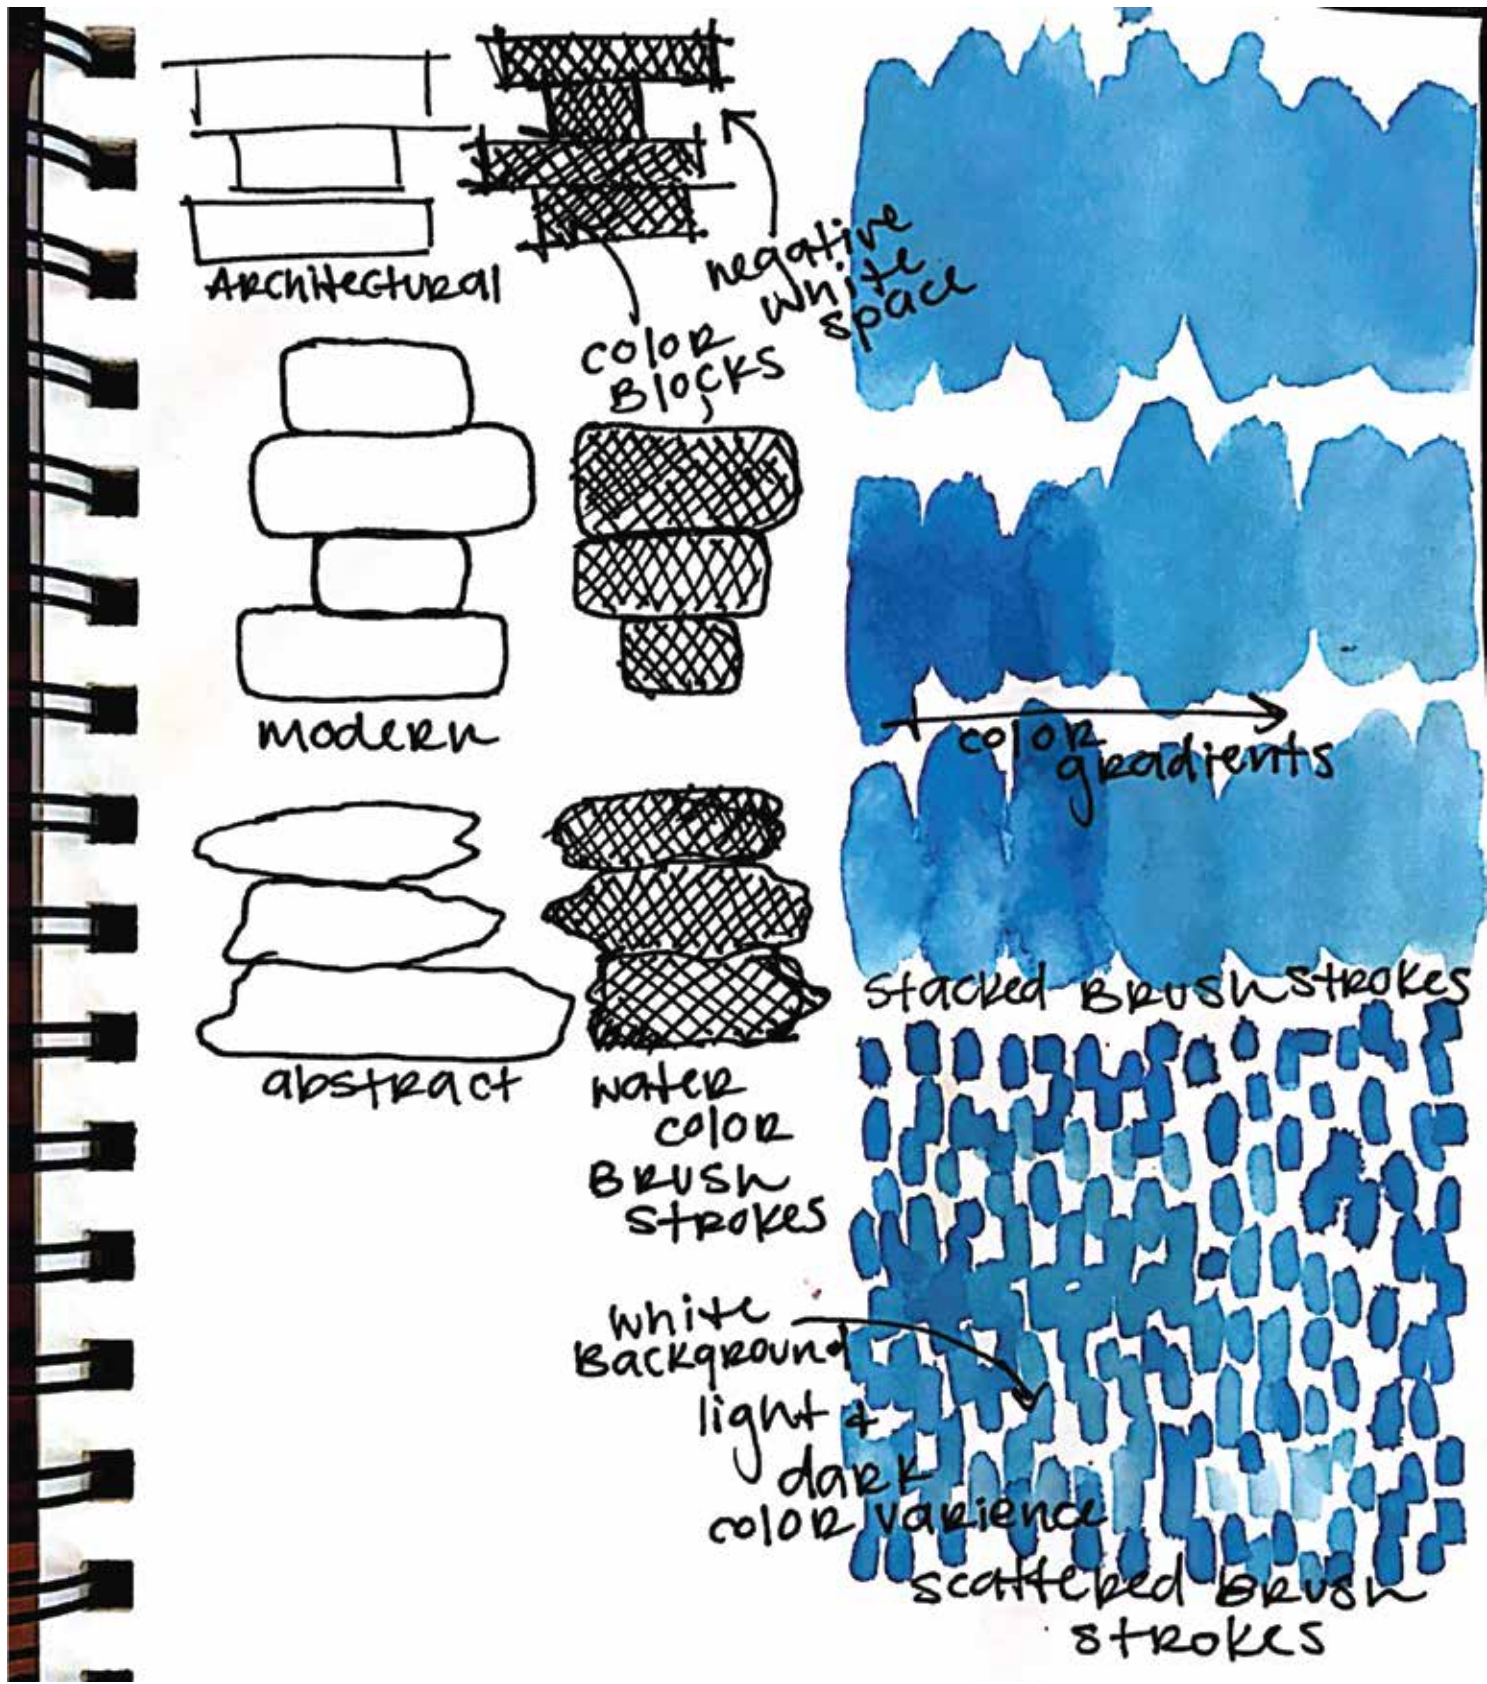 Architectural
negative
white
space
color
Blocks
modern
color
gradients
stacked Brush strokes
abstract
water
color
Brush
strokes
white
Background
light +
dark
color varience
scattered Brush
strokes